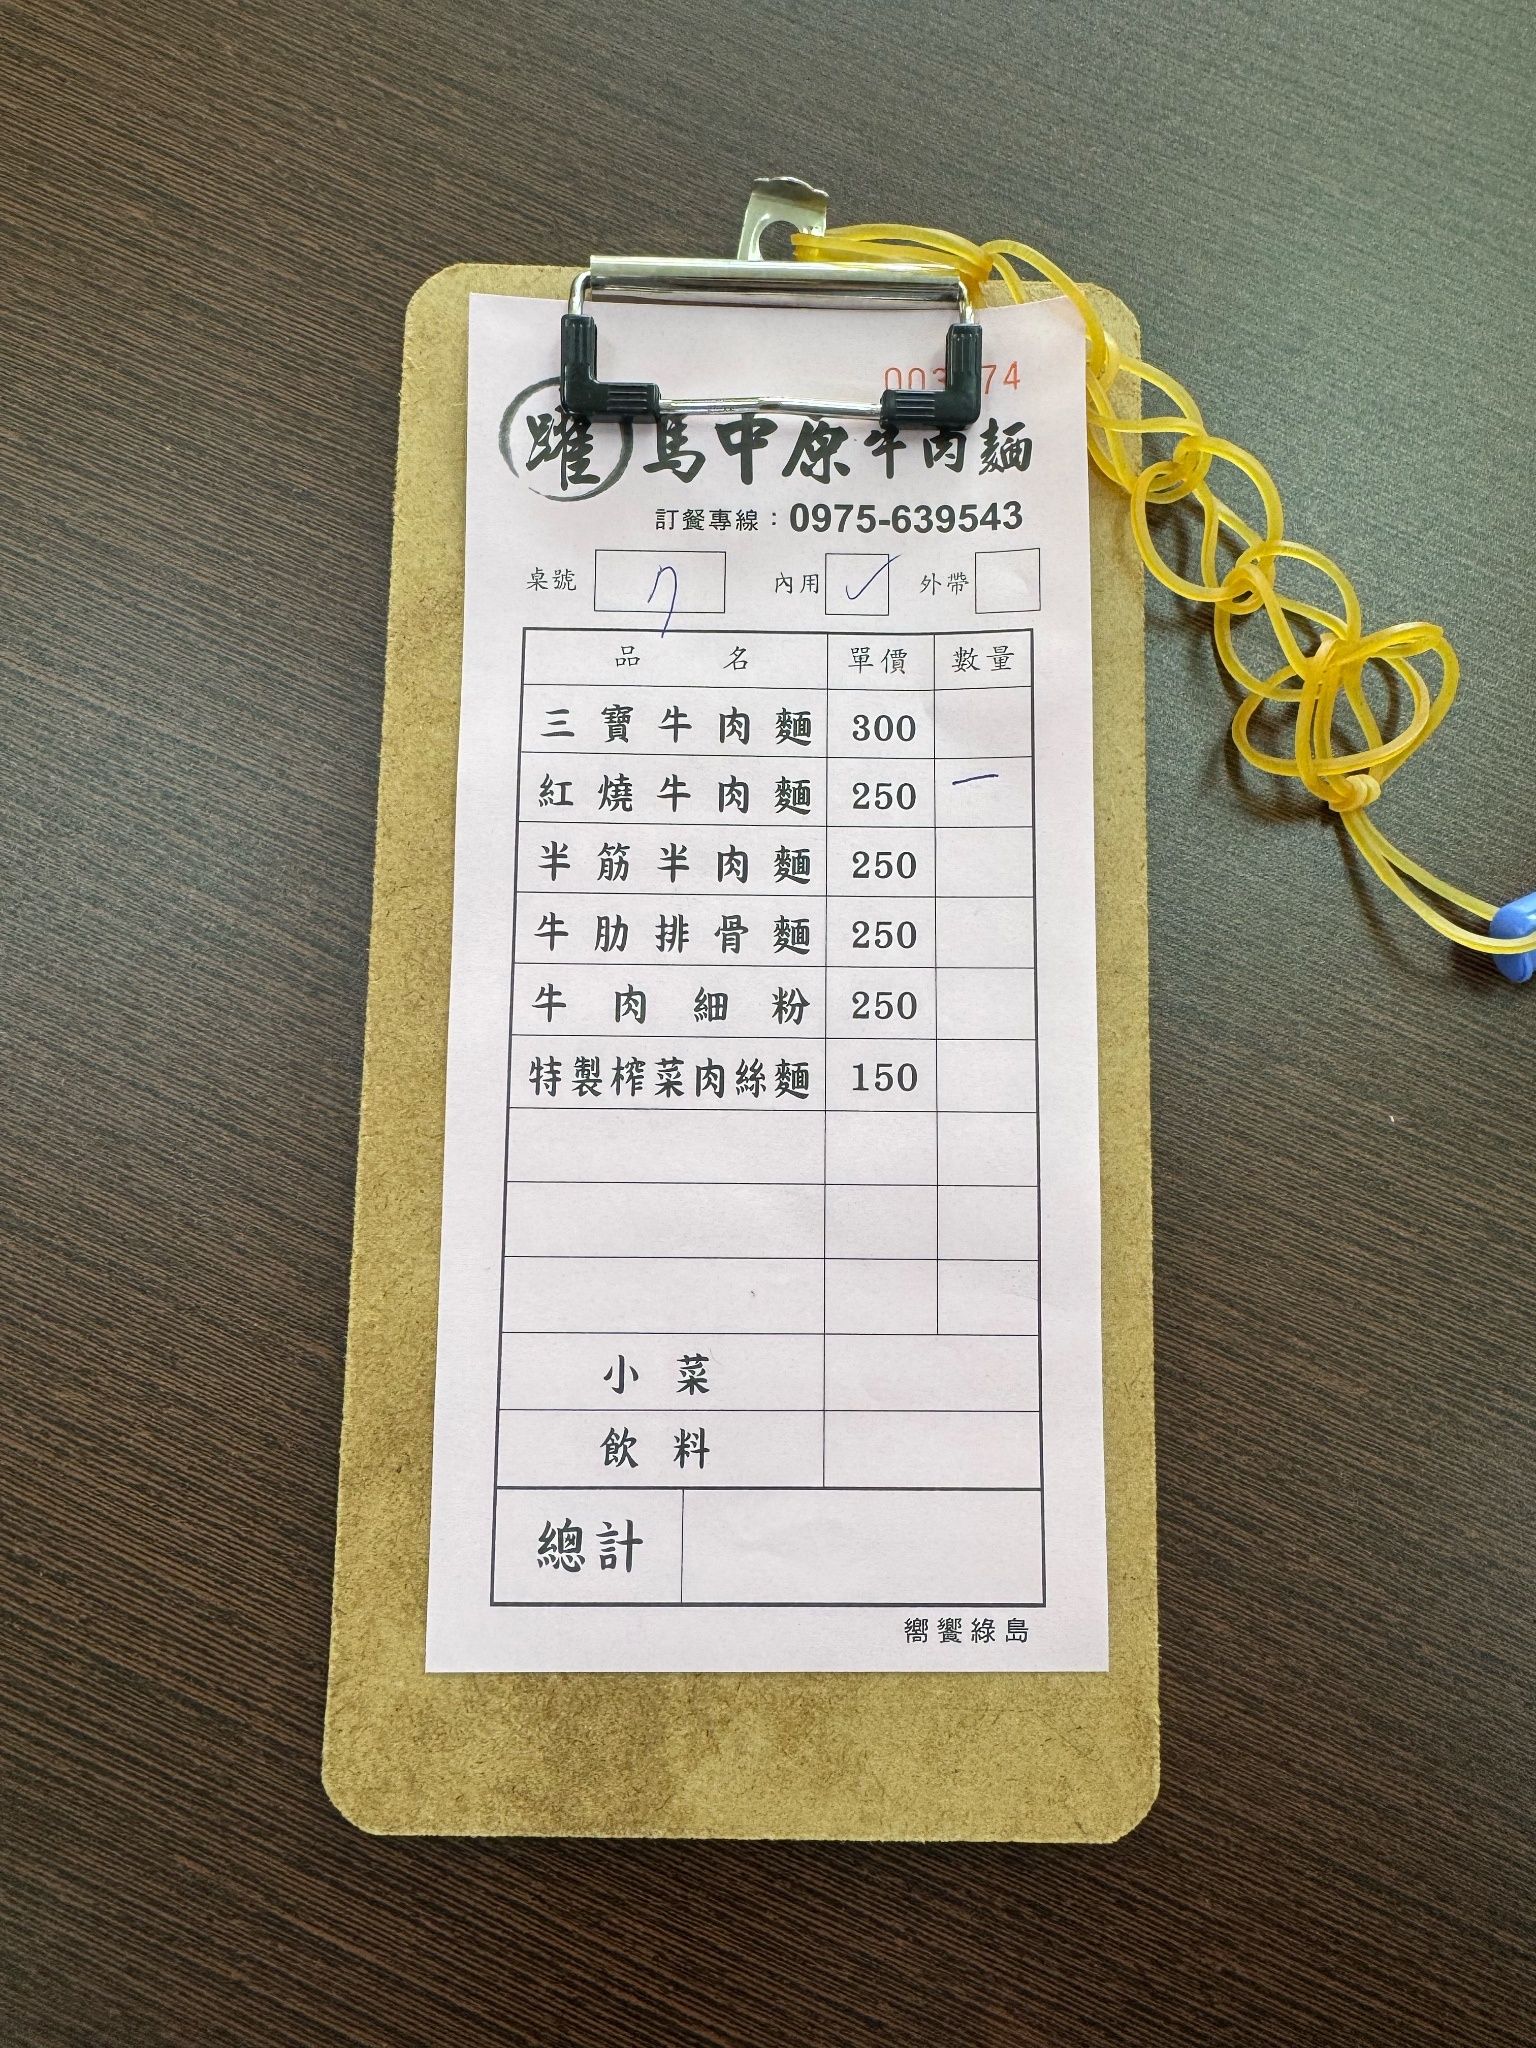 躍馬中原牛肉麵
訂餐專線：0975-639543
桌號 7 內用 ✓ 外帶
品名 單價 數量
三寶牛肉麵 300
紅燒牛肉麵 250 一
半筋半肉麵 250
牛肋排骨麵 250
牛肉細粉 250
特製榨菜肉絲麵 150
小菜
飲料
總計
嚮饗綠島